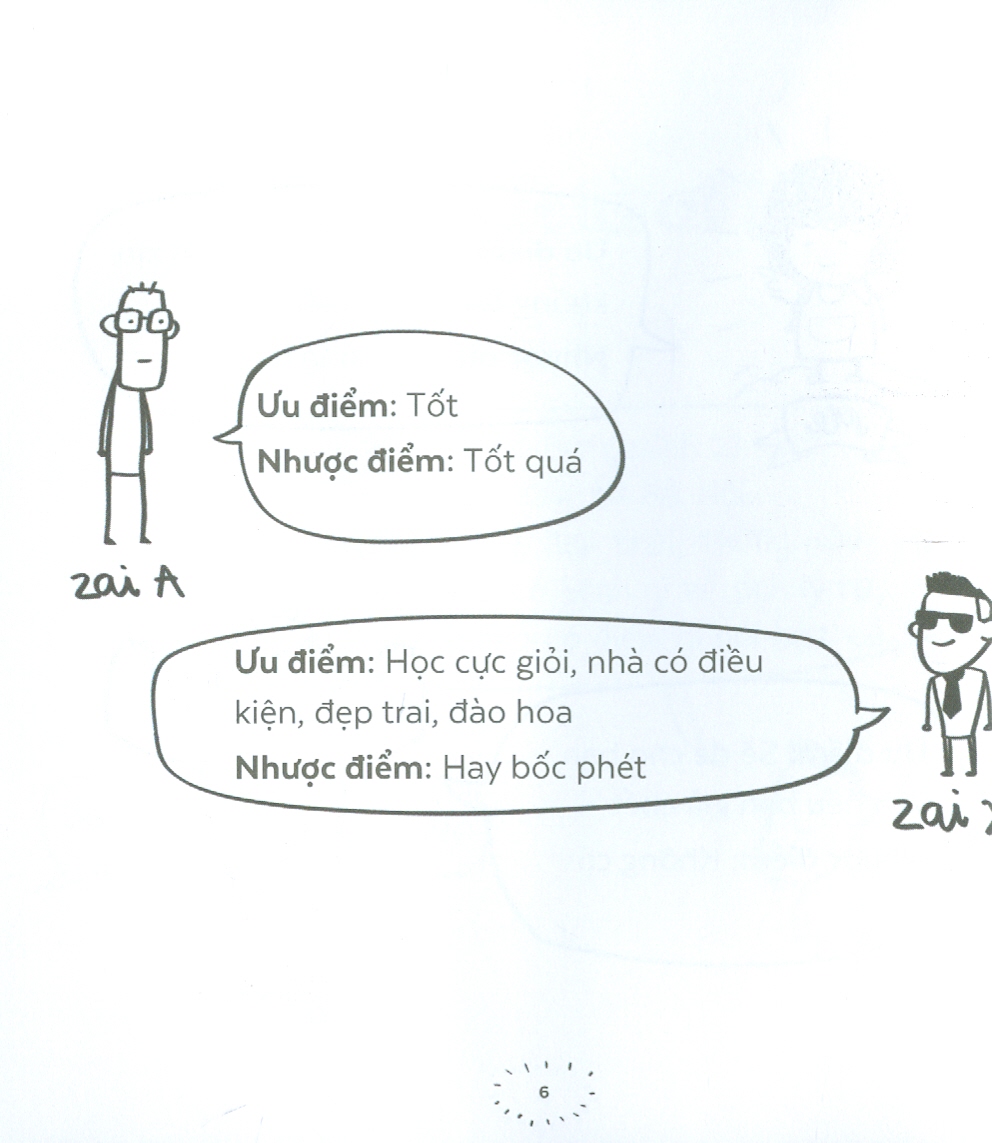 Ưu điểm: Tốt
Nhược điểm: Tốt quá
zai A
Ưu điểm: Học cực giỏi, nhà có điều
kiện, đẹp trai, đào hoa
Nhược điểm: Hay bốc phét
zai
6